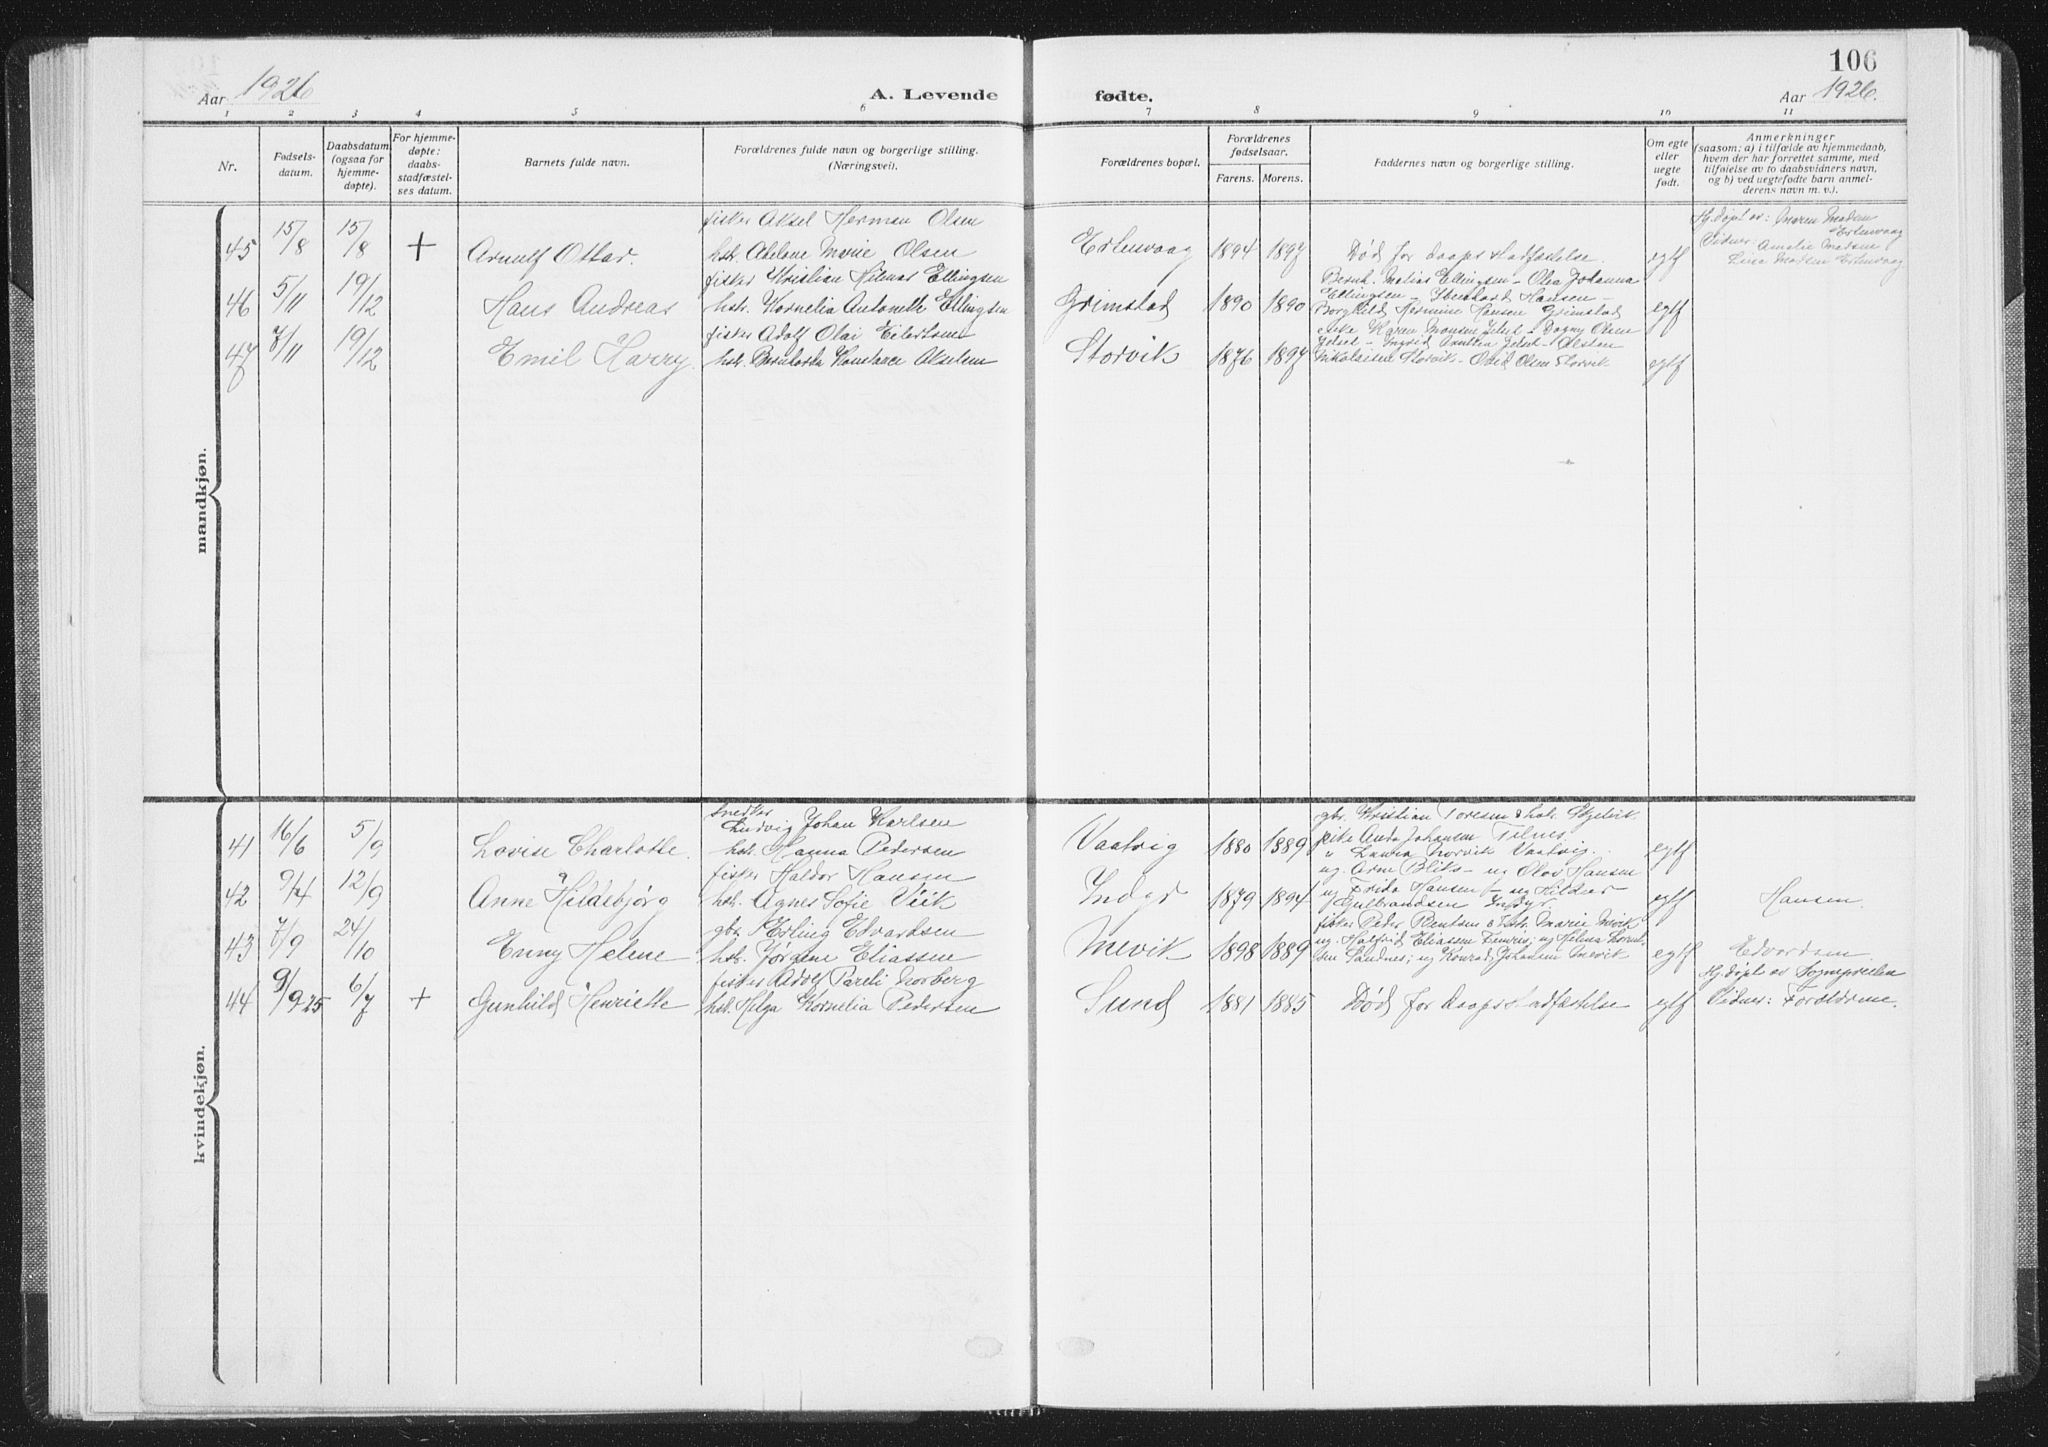 106
Aar 1926
A. Levende fødte.
Aar 1926.
1 2 3 4 5 6 7 8 9 10 11
Nr.
Fødsels-
datum.
Daabsdatum
(ogsaa for
hjemme-
døpte).
For hjemme-
døpte:
daabs-
stadfæstel-
ses datum.
Barnets fulde navn.
Forældrenes fulde navn og borgerlige stilling.
(Næringsvei).
Forældrenes bopæl.
Forældrenes
fødselsaar.
Farens. Morens.
Faddernes navn og borgerlige stilling.
Om egte
eller
uegte
født.
Anmerkninger
(saasom: a) i tilfælde av hjemmedaab,
hvem der har forrettet samme, med
tilføielse av to daabsvidners navn,
og b) ved uegtefødte barn anmel-
derens navn m. v.).
mandkjøn.
45 15/8 15/8 + Arnulf Ottar.
fisker Aksel Herman Olsen
hst. Abelone Marie Olsen
Ertenvaag 1894 1897
Død før daaps stadfæstelse. egtf
Hj.døpt av: Maren Madsen
Ertenvaag
Vidner: Amalie Madsen
Lina Madsen Ertenvaag
46 5/11 19/12 Hans Andreas
fisker Kristian Hilmar Ellingsen
hst. Kornelia Antonette Ellingsen
Grimstad 1890 1890
Bernh. Matias Ellingsen - Olea Johanna
Ellingsen - Hansen -
Borghild Hermine Hansen Grimstad
egtf
47 7/11 19/12 Emil Harry.
fisker Adolf Olai Eilertsen
hst. Konstance Akselsen
Storvik 1876 1897
Karen Monsen - Dagny Olsen
- Ingrid -
Nikolaisen Storvik - Olsen Storvik
egtf
kvindekjøn.
41 16/6 5/9 Lovise Charlotte.
snedker
Ludvig Johan Karlsen
hst. Hanna Pedersen
Vaatvig 1880 1889
gbr. Kristian Toresen & hst.
pike Anda Johansen
" Laura Norvik Vaatvig.
egtf
42 9/4 12/9 Anne Hildebjørg
fisker Haldor Hansen
hst. Agnes Sofie Viik
Indyr 1879 1894
ug. Arne Bliks - ug Olav Hansen
ug Frida Hansen - ug Hilmar
Gulbrandsen Indyr.
egtf Hansen.
43 7/9 24/10 Enny Helene
gbr. Erling Edvardsen
hst. Jørgine Eliassen
Mevik 1898 1889
fisker Peder Bentsen & hst. Marie Mevik
ug. Halfrid Eliassen ; ug Helena
Sandnes; ug Konrad Johansen Mevik
egtf Edvardsen
44 9/9 25 6/7 + Gunhild Henriette
fisker Adolf Pareli Norberg
hst. Helga Kornelia Pedersen
Sund 1881 1885
Død før Daaps stadfæstelse egtf
Hj.døpt av Sognepresten
Vidner: Forældrene.